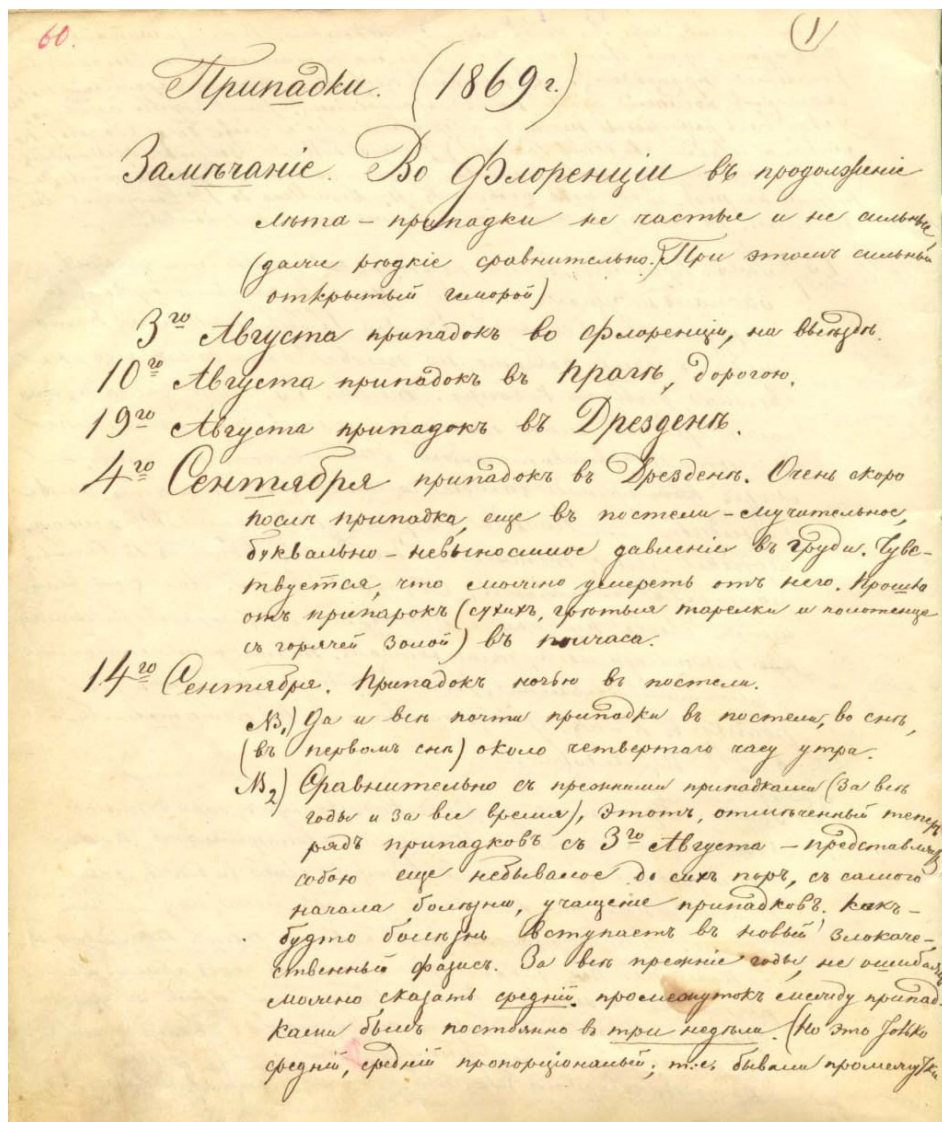 60.
(1)
Припадки. (1869 г.)
Замѣчаніе. Во Флоренціи въ продолженіе
лѣта – припадки не частые и не сильные,
(даже рѣдкіе сравнительно. При этомъ сильный
открытый геморой)
3го Августа припадокъ во Флоренціи, на выѣздѣ.
10го Августа припадокъ въ Прагѣ, дорогою.
19го Августа припадокъ въ Дрезденѣ.
4го Сентября припадокъ въ Дрезденѣ. Очень скоро
послѣ припадка, еще въ постели – мучительное,
буквально – невыносимое давленіе въ груди. Чувс-
твуется, что можно умереть отъ него. Прошло
отъ припарокъ (сухихъ, грѣтыя тарелки и полотенце
съ горячей золой) въ полчаса.
14го Сентября. Припадокъ ночью въ постели.
NB1) Да и всѣ почти припадки въ постели, во снѣ,
(въ первомъ снѣ) около четвертаго часу утра.
NB2) Сравнительно съ прежними припадками (за всѣ
годы и за все время), этотъ, отмѣченный теперь
рядъ припадковъ съ 3го Августа – представляетъ
собою еще небывалое до сихъ поръ, съ самого
начала болѣзни, учащеніе припадковъ. Какъ-
будто болѣзнь вступаетъ въ новый злокаче-
ственный фазисъ. За всѣ прежніе годы, не ошибаясь,
можно сказать средній промежутокъ между припад-
ками былъ постоянно въ три недѣли. (Но это только
средній, средній пропорціональный; т.е. бывали промежутки